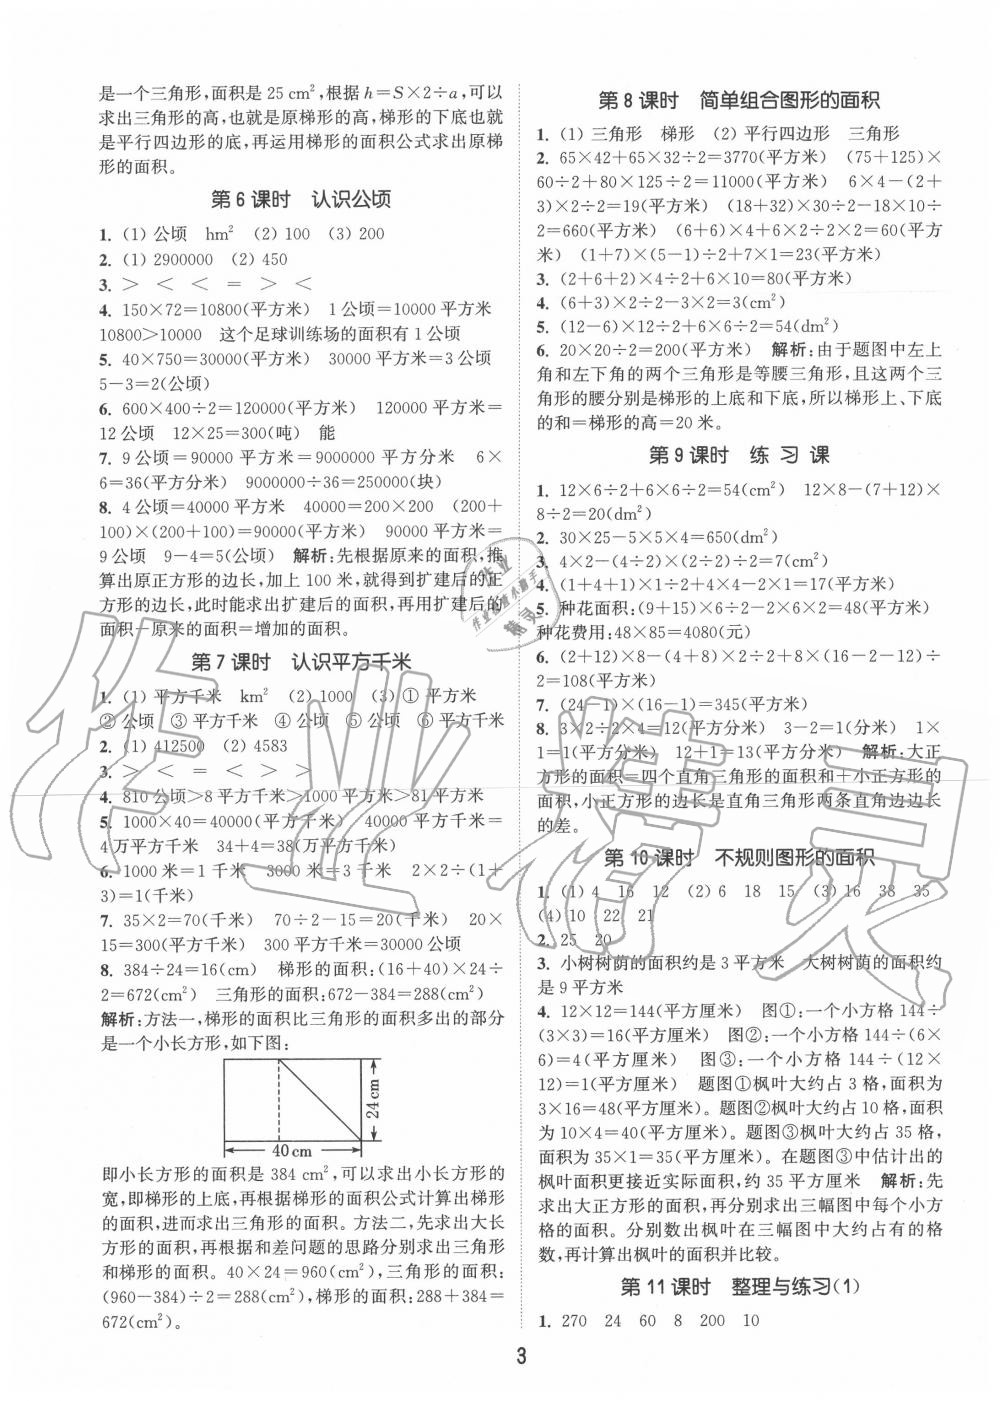 是一个三角形,面积是 25 cm²,根据 h=S×2÷a,可以
求出三角形的高,也就是原梯形的高,梯形的下底也就
是平行四边形的底,再运用梯形的面积公式求出原梯
形的面积。
第 6 课时 认识公顷
1. (1) 公顷 hm² (2) 100 (3) 200
2. (1) 2900000 (2) 450
3. > < < = > <
4. 150×72=10800(平方米) 1 公顷=10000 平方米
10800>10000 这个足球训练场的面积有 1 公顷
5. 40×750=30000(平方米) 30000 平方米=3 公顷
5-3=2(公顷)
6. 600×400÷2=120000(平方米) 120000 平方米=
12 公顷 12×25=300(吨) 能
7. 9 公顷=90000 平方米=9000000 平方分米 6×
6=36(平方分米) 9000000÷36=250000(块)
8. 4 公顷=40000 平方米 40000=200×200 (200+
100)×(200+100)=90000(平方米) 90000 平方米=
9 公顷 9-4=5(公顷) 解析:先根据原来的面积,推
算出原正方形的边长,加上 100 米,就得到扩建后的正
方形的边长,此时能求出扩建后的面积,再用扩建后的
面积-原来的面积=增加的面积。
第 7 课时 认识平方千米
1. (1) 平方千米 km² (2) 1000 (3) ① 平方米
② 公顷 ③ 平方千米 ④ 公顷 ⑤ 公顷 ⑥ 平方千米
2. (1) 412500 (2) 4583
3. > < = < > >
4. 810 公顷>8 平方千米>1000 平方米>81 平方米
5. 1000×40=40000(平方千米) 40000 平方千米=
4 万平方千米 34+4=38(万平方千米)
6. 1000 米=1 千米 3000 米=3 千米 2×2÷(1+
3)=1(千米)
7. 35×2=70(千米) 70÷2-15=20(千米) 20×
15=300(平方千米) 300 平方千米=30000 公顷
8. 384÷24=16(cm) 梯形的面积:(16+40)×24÷
2=672(cm²) 三角形的面积:672-384=288(cm²)
解析:方法一,梯形的面积比三角形的面积多出的部分
是一个小长方形,如下图:
24 cm
40 cm
即小长方形的面积是 384 cm²,可以求出小长方形的
宽,即梯形的上底,再根据梯形的面积公式计算出梯形
的面积,进而求出三角形的面积。方法二,先求出大长
方形的面积,再根据和差问题的思路分别求出三角形
和梯形的面积。40×24=960(cm²),三角形的面积:
(960-384)÷2=288(cm²),梯形的面积:288+384=
672(cm²)。
第 8 课时 简单组合图形的面积
1. (1) 三角形 梯形 (2) 平行四边形 三角形
2. 65×42+65×32÷2=3770(平方米) (75+125)×
60÷2+80×125÷2=11000(平方米) 6×4-(2+
3)×2÷2=19(平方米) (18+32)×30÷2-18×10÷
2=660(平方米) (6+6)×4+6×2÷2×2=60(平方
米) (1+7)×(5-1)÷2+7×1=23(平方米)
3. (2+6+2)×4÷2+6×10=80(平方米)
4. (6+3)×2÷2-3×2=3(cm²)
5. (12-6)×12÷2+6×6÷2=54(dm²)
6. 20×20÷2=200(平方米) 解析:由于题图中左上
角和左下角的两个三角形是等腰三角形,且这两个三
角形的腰分别是梯形的上底和下底,所以梯形上、下底
的和=梯形的高=20 米。
第 9 课时 练 习 课
1. 12×6÷2+6×6÷2=54(cm²) 12×8-(7+12)×
8÷2=20(dm²)
2. 30×25-5×5×4=650(dm²)
3. 4×2-(4÷2)×(2÷2)÷2=7(cm²)
4. (1+4+1)×1÷2+4×4-2×1=17(平方米)
5. 种花面积:(9+15)×6÷2-2×6×2=48(平方米)
种花费用:48×85=4080(元)
6. (2+12)×8-(4+8)×2÷2+8×(16-2-12)÷
2=108(平方米)
7. (24-1)×(16-1)=345(平方米)
8. 3×2÷2×4=12(平方分米) 3-2=1(分米) 1×
1=1(平方分米) 12+1=13(平方分米) 解析:大正
方形的面积=四个直角三角形的面积和+小正方形的
面积,小正方形的边长是直角三角形两条直角边边长
的差。
第 10 课时 不规则图形的面积
1. (1) 4 16 12 (2) 6 18 15 (3) 16 38 35
(4) 10 22 21
2. 25 20
3. 小树树荫的面积约是 3 平方米 大树树荫的面积约
是 9 平方米
4. 12×12=144(平方厘米) 图①:一个小方格 144÷
(3×3)=16(平方厘米) 图②:一个小方格 144÷(6×
6)=4(平方厘米) 图③:一个小方格 144÷(12×
12)=1(平方厘米) 题图①枫叶大约占 3 格,面积为
3×16=48(平方厘米)。题图②枫叶大约占 10 格,面积
为 10×4=40(平方厘米)。题图③枫叶大约占 35 格,
面积为 35×1=35(平方厘米)。在题图③中估计出的
枫叶面积更接近实际面积,约 35 平方厘米 解析:先
求出大正方形的面积,再分别求出三幅图中每个小方
格的面积。分别数出枫叶在三幅图中大约占有的格
数,再计算出枫叶的面积并比较。
第 11 课时 整理与练习(1)
1. 270 24 60 8 200 10
3
作业精灵